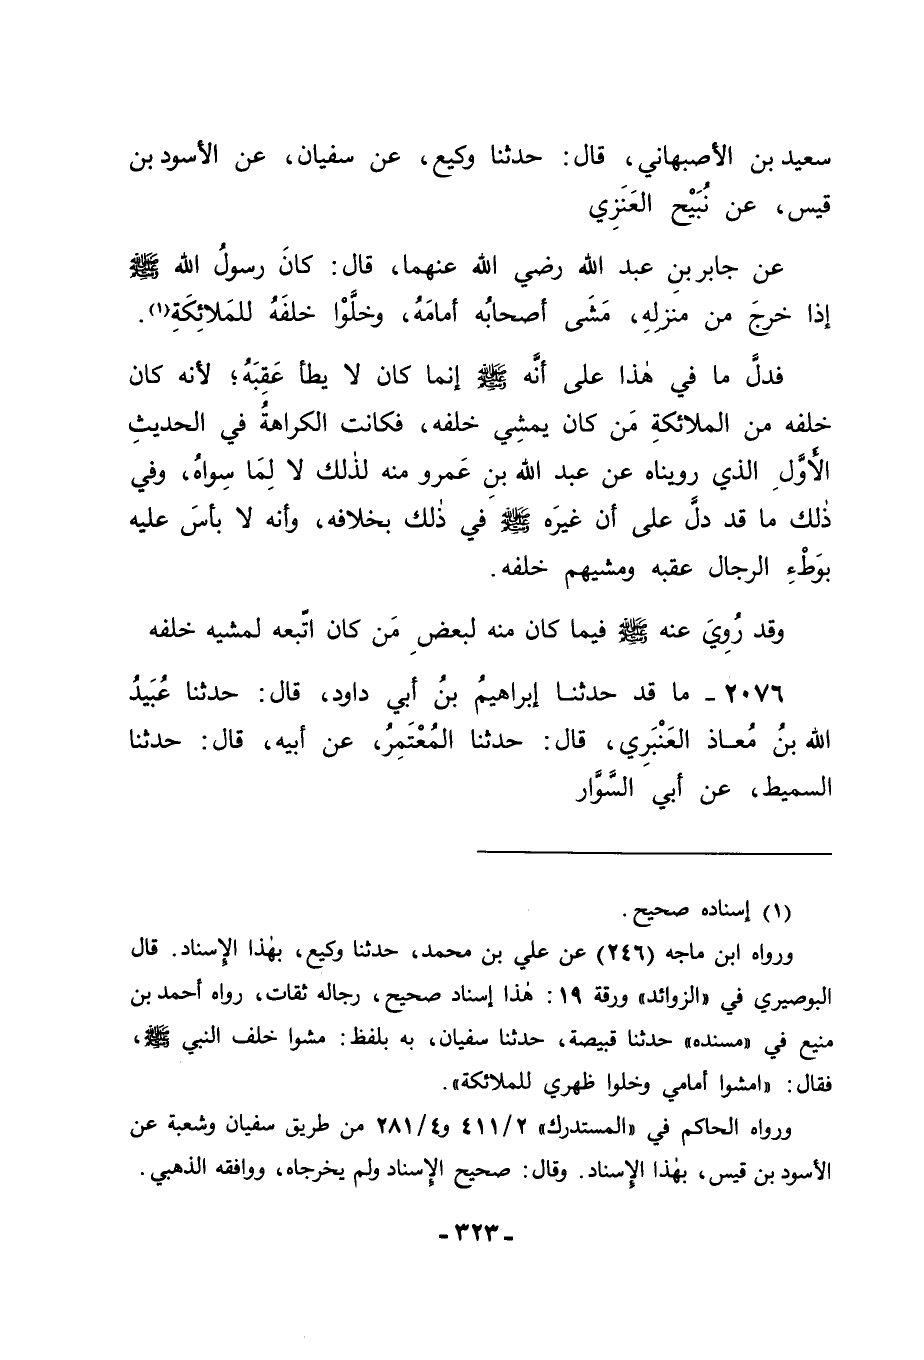 سعيد بن الأصبهاني، قال: حدثنا وكيع، عن سفيان، عن الأسود بن
قيس، عن نُبَيْح العَنَزِي
عن جابر بنِ عبد الله رضي الله عنهما، قال: كانَ رسولُ الله ﷺ
إذا خرجَ من منزلِهِ، مَشَى أصحابُه أمامَهُ، وخلَّوْا خلفَهُ للمَلائِكَةِ(١).
فدلَّ ما في هٰذا على أنَّه ﷺ إنما كان لا يطأ عَقِبَهُ؛ لأنه كان
خلفه من الملائكةِ مَن كان يمشِي خلفه، فكانت الكراهةُ في الحديثِ
الأَوَّلِ الذي رويناه عن عبد الله بنِ عَمرو منه لذٰلك لا لِمَا سِواهُ، وفي
ذٰلك ما قد دلَّ على أن غيرَه ﷺ في ذٰلك بخلافه، وأنه لا بأسَ عليه
بوَطْءِ الرجال عقبه ومشيهم خلفه.
وقد رُوِيَ عنه ﷺ فيما كان منه لبعضِ مَن كان اتّبعه لمشيه خلفه
٢٠٧٦ - ما قد حدثنا إبراهيمُ بنُ أبي داود، قال: حدثنا عُبَيدُ
الله بنُ مُعاذ العَنْبَرِي، قال: حدثنا المُعْتَمِرُ، عن أبيه، قال: حدثنا
السميط، عن أبي السَّوَّار
(١) إسناده صحيح.
ورواه ابن ماجه (٢٤٦) عن علي بن محمد، حدثنا وكيع، بهٰذا الإِسناد. قال
البوصيري في «الزوائد» ورقة ١٩: هٰذا إسناد صحيح، رجاله ثقات، رواه أحمد بن
منيع في «مسنده» حدثنا قبيصة، حدثنا سفيان، به بلفظ: مشوا خلف النبي ﷺ،
فقال: «امشوا أمامي وخلوا ظهري للملائكة».
ورواه الحاكم في «المستدرك» ٤١١/٢ و٢٨١/٤ من طريق سفيان وشعبة عن
الأسود بن قيس، بهٰذا الإِسناد. وقال: صحيح الإِسناد ولم يخرجاه، ووافقه الذهبي.
- ٣٢٣ -